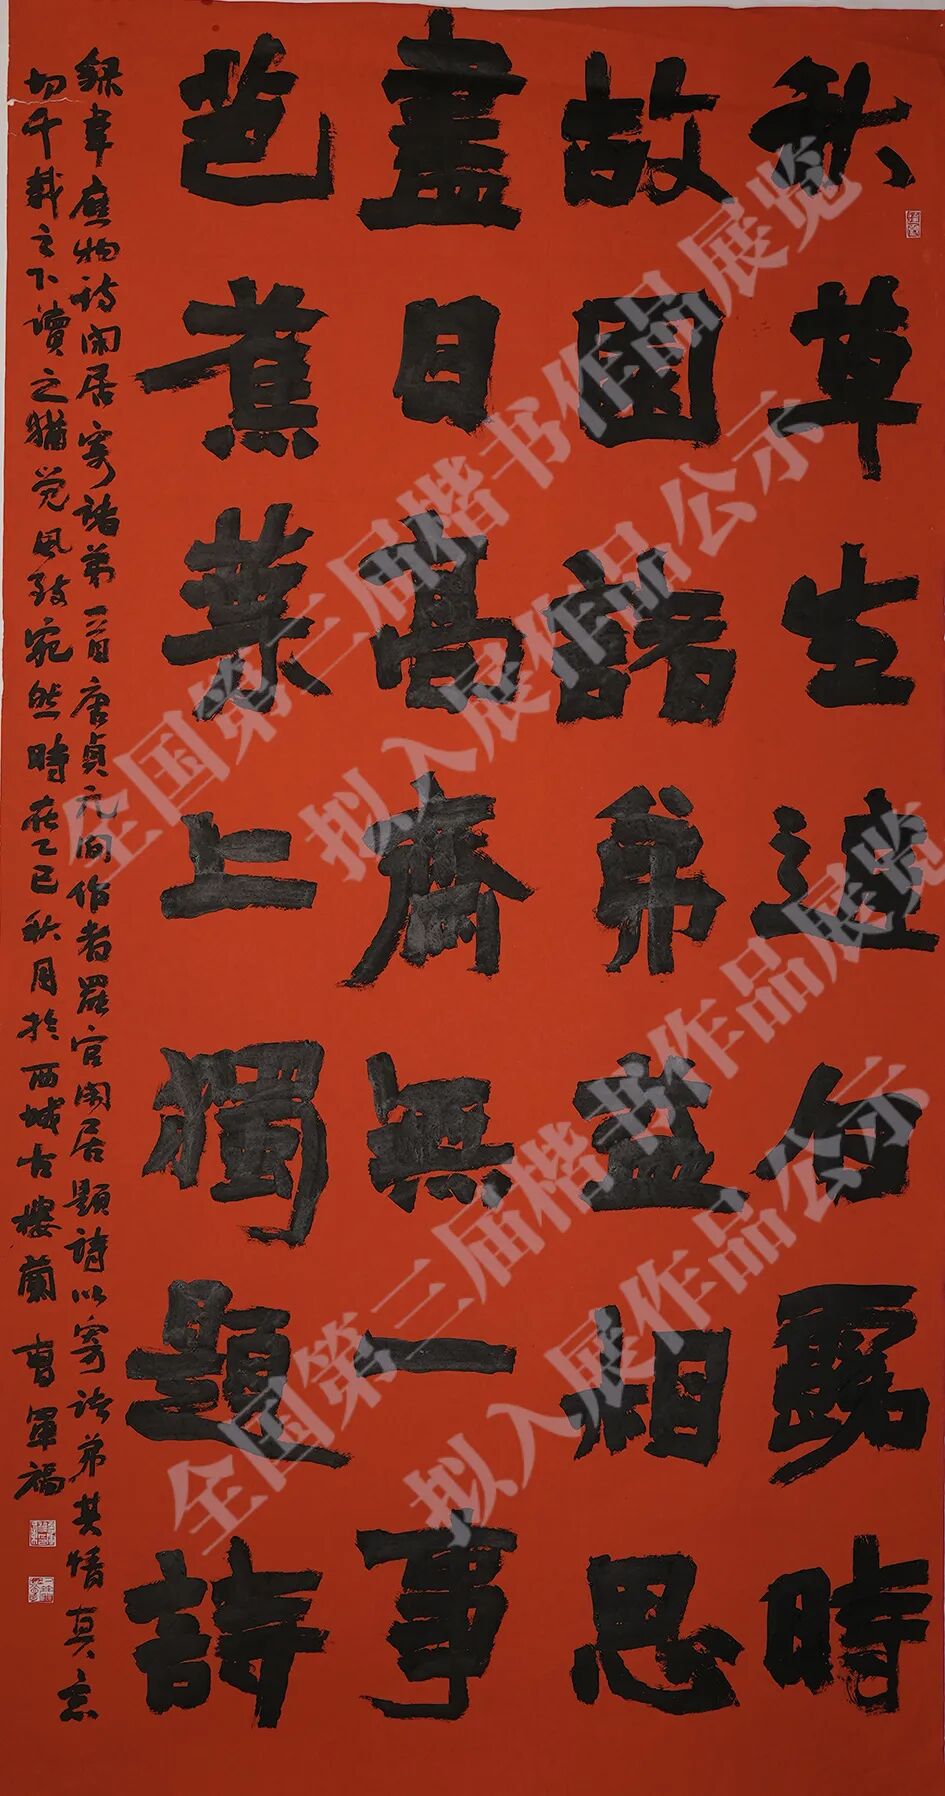 秋草生庭白露時
故園諸弟益相思
盡日高齋無一事
芭蕉葉上獨題詩
録韋應物詩閑居寄諸弟一首唐貞元間作者罷官閑居題詩以寄諸弟其情真意
切千載之下讀之猶覺風致宛然時在乙巳秋月於西城古樓蘭曹軍福
全国第三届楷书作品展览
拟入展作品公示
全国第三届楷书作品展览
拟入展作品公示